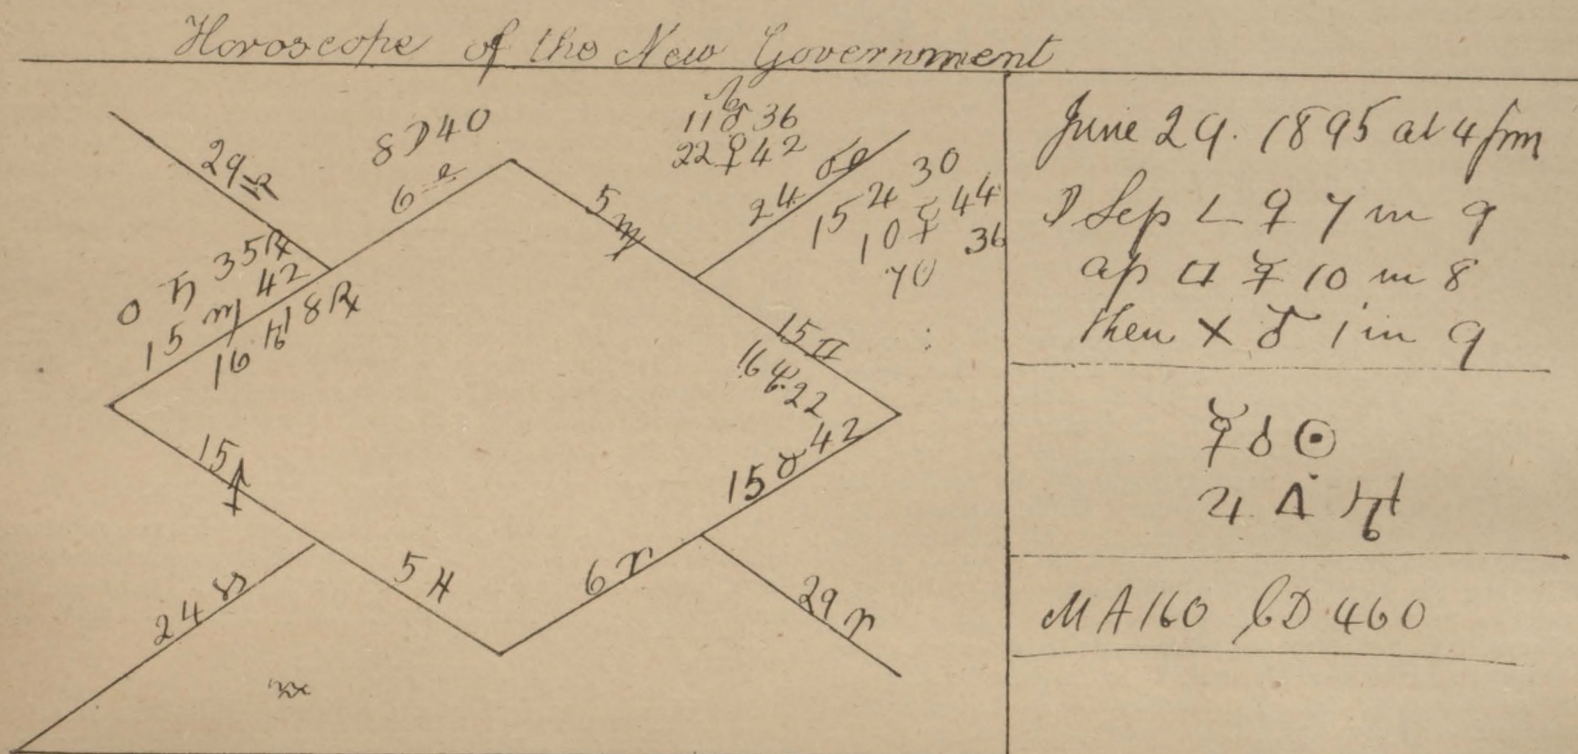 Horoscope of the New Government
8☽40
6♎
29♎
5♍
♌
11♂36
22♀42
24♋
15♃30
10☿44
7☉36
0♄35℞
15♏42
16♅18℞
15♊
16♆22
15♉42
15♐
5♓
6♈
24♑
29♈
♒
June 29. 1895 at 4 pm
☽ Sep ∠ ♀ 7 in 9
ap □ ☿ 10 in 8
then ⚹ ♂ 1 in 9
☿ ☌ ☉
♃ △ ♅
MA160 CD 460